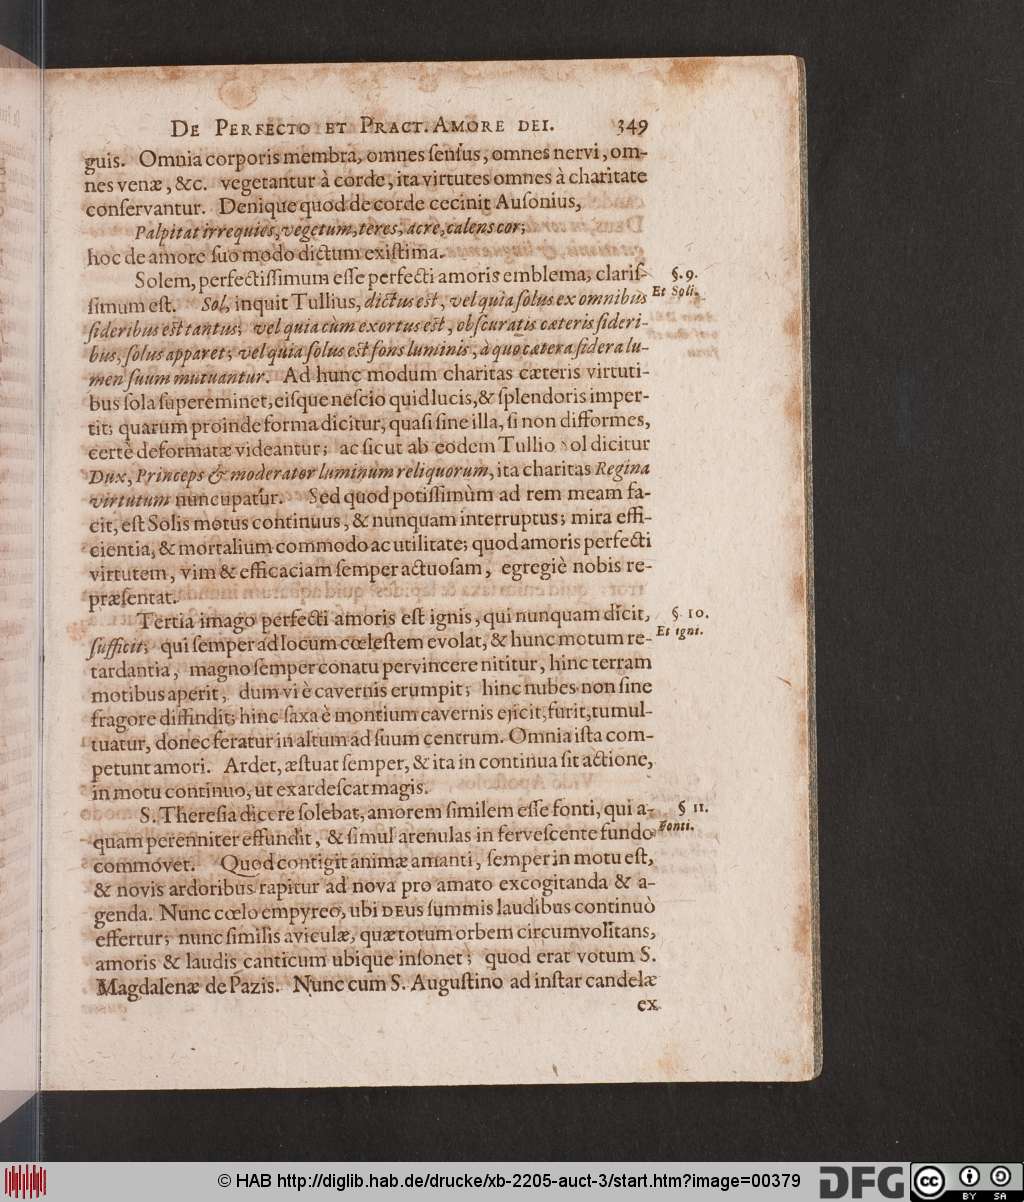 De Perfecto et Pract. Amore dei. 349
guis. Omnia corporis membra, omnes ſenſus, omnes nervi, om-
nes venæ, &c. vegetantur à corde, ita virtutes omnes à charitate
conſervantur. Denique quod de corde cecinit Auſonius,
Palpitat irrequies, vegetum, teres, acre, calens cor;
hoc de amore ſuo modo dictum exiſtima.
Solem, perfectiſſimum eſſe perfecti amoris emblema, clariſ- §. 9.
ſimum eſt. Sol, inquit Tullius, dictus eſt, vel quia ſolus ex omnibus Et Soli.
ſideribus eſt tantus; vel quia cùm exortus eſt, obſcuratis cæteris ſideri-
bus, ſolus apparet; vel quia ſolus eſt fons luminis, à quo cætera ſidera lu-
men ſuum mutuantur. Ad hunc modum charitas cæteris virtuti-
bus ſola ſupereminet, eiſque neſcio quid lucis, & ſplendoris imper-
tit; quarum proinde forma dicitur, quaſi ſine illa, ſi non difformes,
certè deformatæ videantur; ac ſicut ab eodem Tullio ol dicitur
Dux, Princeps & moderator luminum reliquorum, ita charitas Regina
virtutum nuncupatur. Sed quod potiſſimùm ad rem meam fa-
cit, eſt Solis motus continuus, & nunquam interruptus; mira effi-
cientia, & mortalium commodo ac utilitate; quod amoris perfecti
virtutem, vim & efficaciam ſemper actuoſam, egregiè nobis re-
præſentat.
Tertia imago perfecti amoris eſt ignis, qui nunquam dicit, § 10.
ſufficit; qui ſemper ad locum cœleſtem evolat, & hunc motum re- Et igni.
tardantia, magno ſemper conatu pervincere nititur, hinc terram
motibus aperit, dum vi è cavernis erumpit; hinc nubes non ſine
fragore diffindit; hinc ſaxa è montium cavernis ejicit, furit, tumul-
tuatur, donec feratur in altum ad ſuum centrum. Omnia iſta com-
petunt amori. Ardet, æſtuat ſemper, & ita in continua ſit actione,
in motu continuo, ut exardeſcat magis.
S. Thereſia dicere ſolebat, amorem ſimilem eſſe fonti, qui a- § 11.
quam perenniter effundit, & ſimul arenulas in ferveſcente fundo Fonti.
commovet. Quod contigit animæ amanti, ſemper in motu eſt,
& novis ardoribus rapitur ad nova pro amato excogitanda & a-
genda. Nunc cœlo empyreo, ubi DEus ſummis laudibus continuò
effertur; nunc ſimilis aviculæ, quæ totum orbem circumvolitans,
amoris & laudis canticum ubique inſonet; quod erat votum S.
Magdalenæ de Pazis. Nunc cum S. Auguſtino ad inſtar candelæ
ex
© HAB http://diglib.hab.de/drucke/xb-2205-auct-3/start.htm?image=00379
DFG
cc BY SA